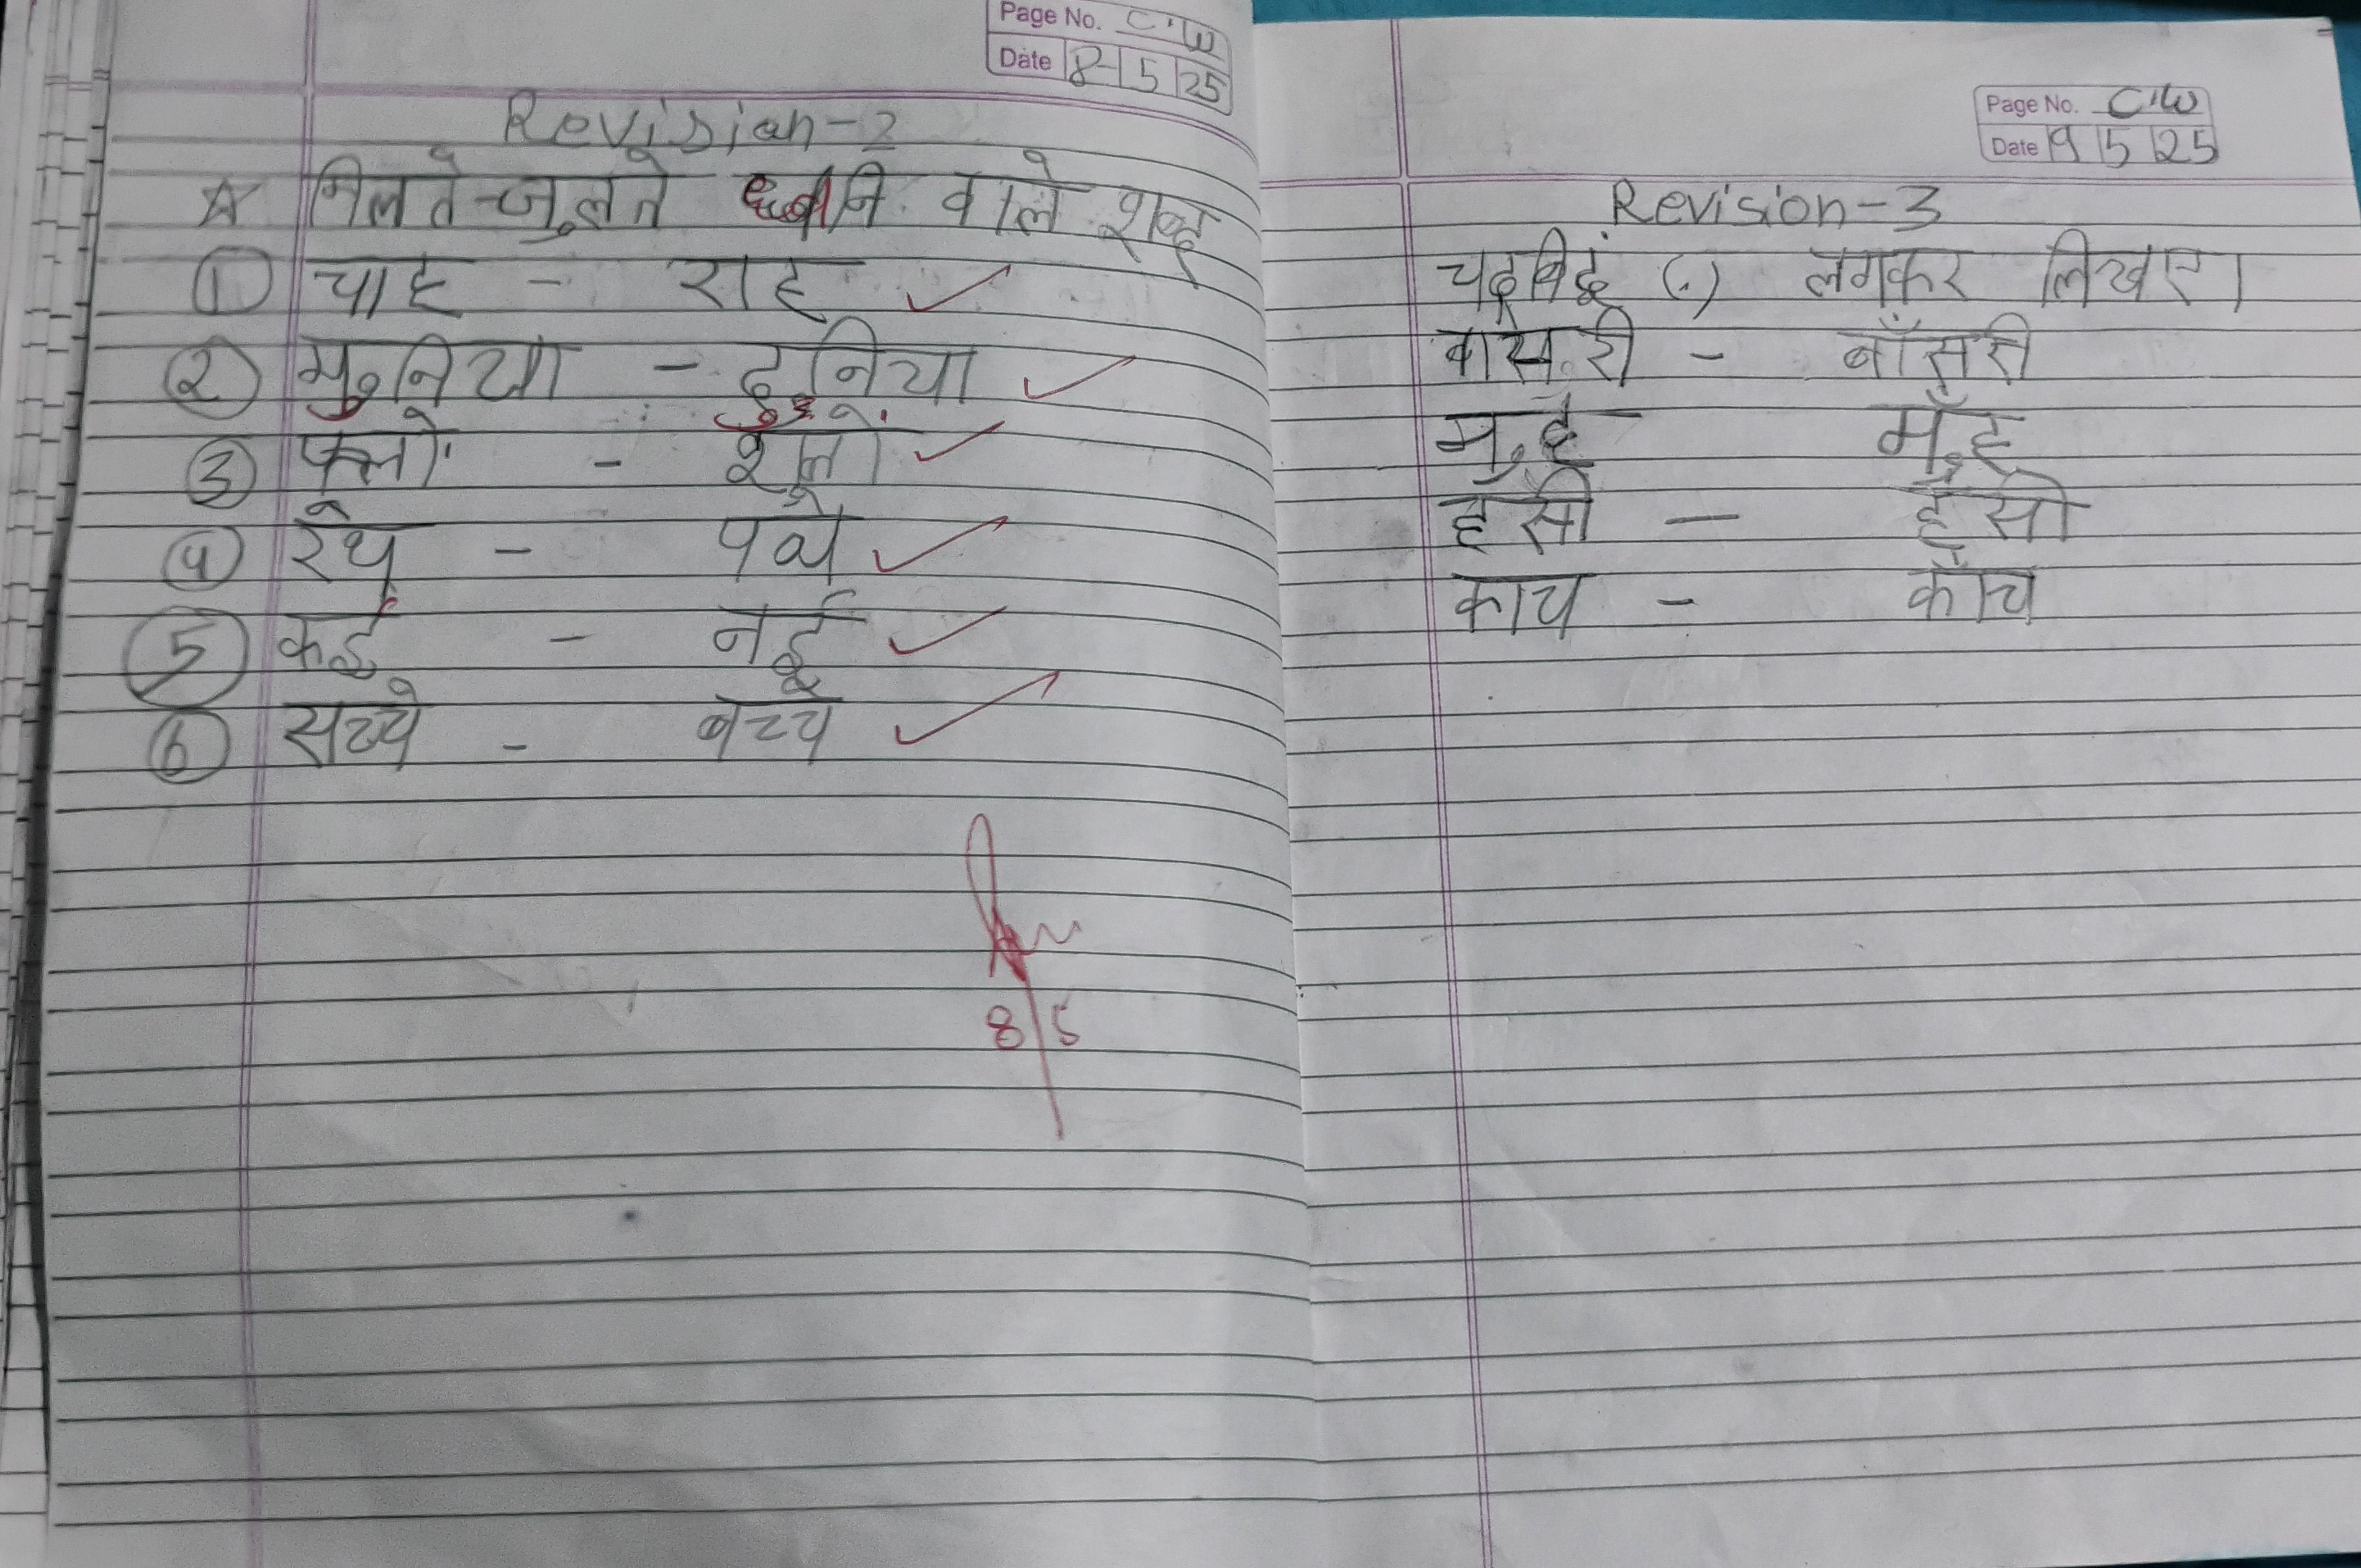 Page No. C.W
Date 8 5 25
Revision-2
☆ मिलते-जुलते ध्वनि वाले शब्द
① चाह - राह
② मुनिया - दुनिया
③ फ्लो - शूलों
④ रथ -
⑤ कई - नई
⑥ सच्चे - बच्चे
8/5
Page No. C.W
Date 9 5 25
Revision-3
चद्रबिदुं (.) लगकर लिखए।
बासुरी - बाँसुरी
मुह - मुँह
हसी - हँसी
काच - काँच